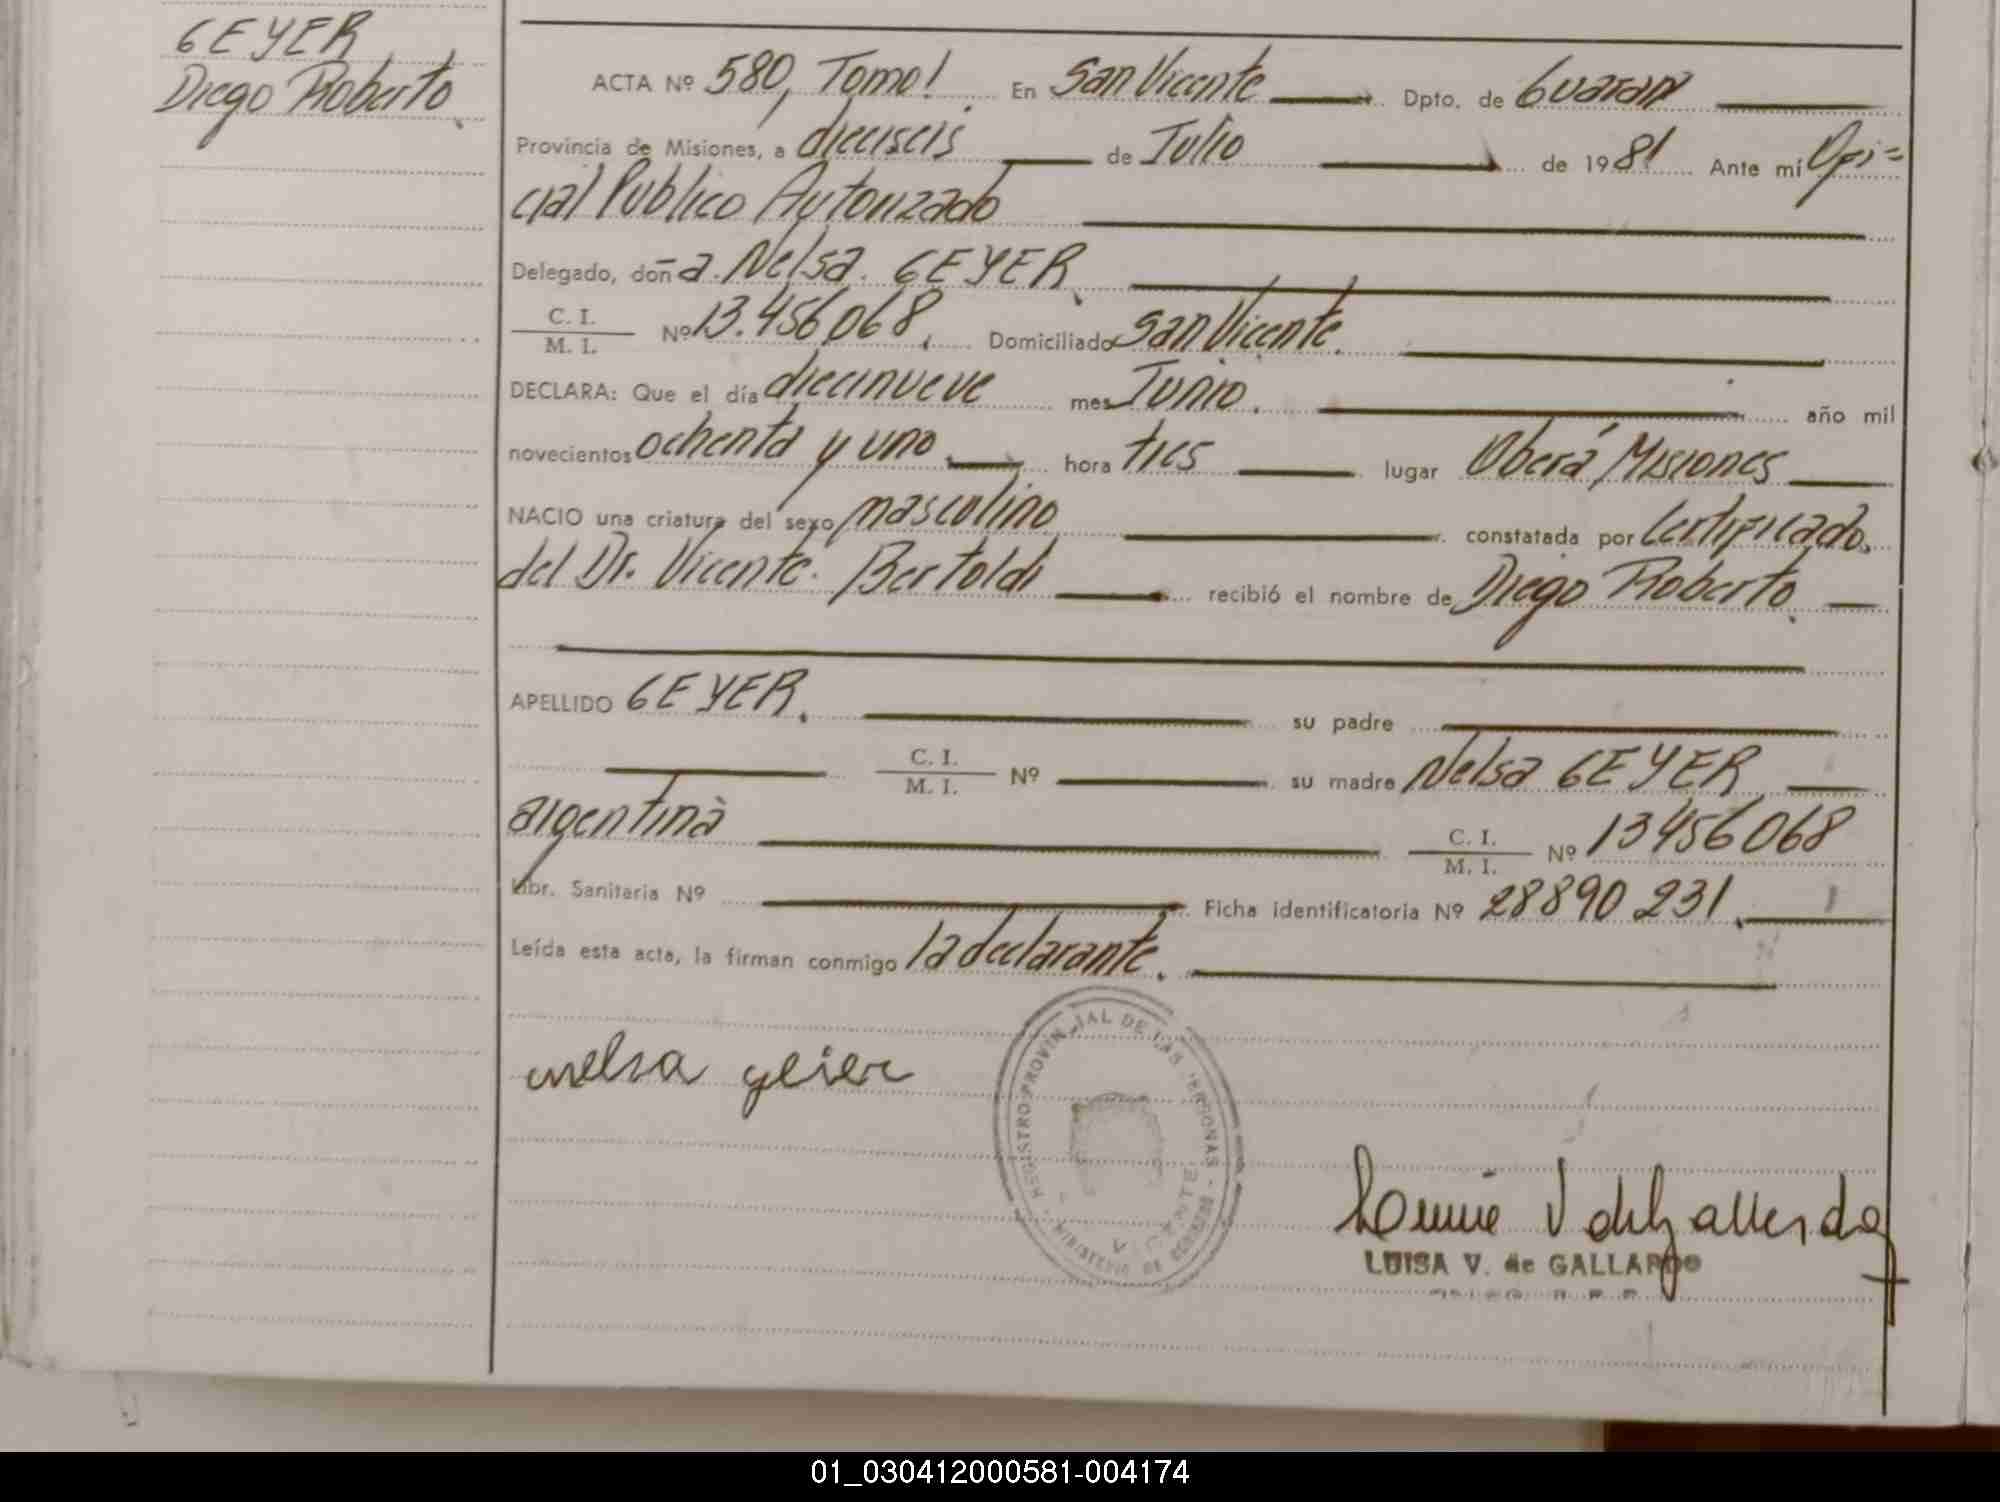 GEYER
Diego Roberto.
ACTA Nº 580, Tomo I. En San Vicente Dpto. de Guaraní
Provincia de Misiones, a dieciseis de Julio de 1981 Ante mí Ofi=
cial Publico Autorizado
Delegado, doña. Nelsa. GEYER.
C. I.
M. I. Nº 13.456068, Domiciliado San Vicente.
DECLARA: Que el día diecinueve mes Junio. año mil
novecientos ochenta y uno hora tres lugar Oberá, Misiones
NACIO una criatura del sexo masculino constatada por Certificado
del Dr. Vicente. Bertoldi recibió el nombre de Diego Roberto.
APELLIDO GEYER. su padre
C. I.
M. I. Nº su madre Nelsa GEYER
argentina C. I.
M. I. Nº 13456068
Libr. Sanitaria Nº Ficha identificatoria Nº 28890231.
Leída esta acta, la firman conmigo la declarante.
nelsa geier
REGISTRO PROVINCIAL DE LAS PERSONAS
MINISTERIO DE GOBIERNO
LUISA V. de GALLARDO
01_030412000581-004174